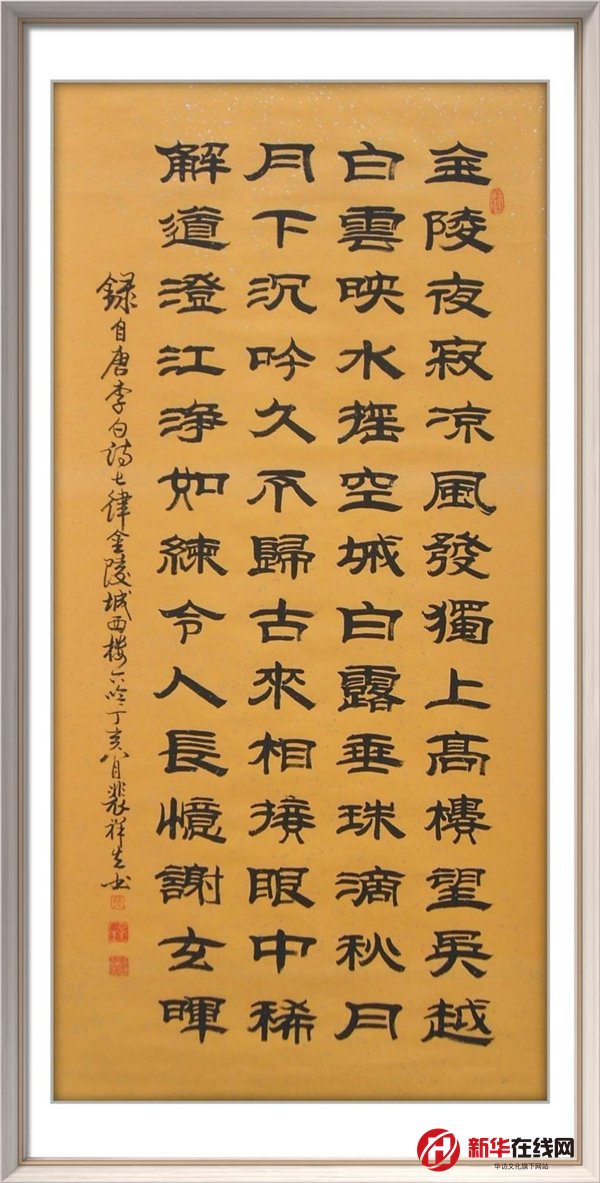 金陵夜寂凉風發獨上高樓望吳越
白雲映水摇空城白露垂珠滴秋月
月下沉吟久不歸古來相接眼中稀
解道澄江净如練令人長憶謝玄暉
録自唐李白诗七律金陵城西楼下吟丁亥八月裴祥生书
新华在线网
华访文化旗下网站